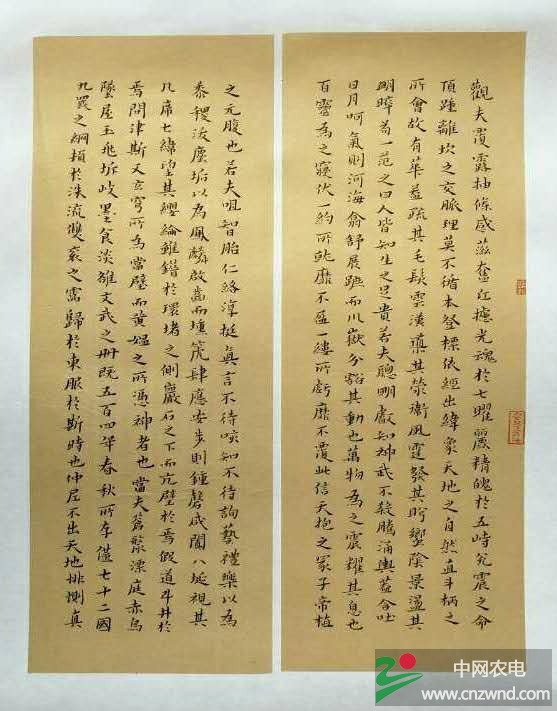 觀夫覆露抽條感蕊奮紅攄光魂於七曜麗精魄於五峙究震之命
頂踵離坎之交脈理莫不循本登標依經出緯象天地之自然直斗柄之
所會故有華蓋疏其毛髮雲漢濃其榮衛風霆發其盱蠁陰景盪其
明晦為一范之曰人皆知生之足貴若夫聰明叡知神武不殺騰涌輿蓋含吐
日月呵氣則河海翕舒展跡而川嶽分豁其動也萬物為之震耀其息也
百靈為之寢伏一約所虧靡不盈一縷所虧靡不覆此信天抱之冢子帝植
之元腹也若夫咀智胎仁絡淳挺真言不待喚知不待詢藝禮樂以為
黍稷泼塵垢以為鳳麟啟齒而壎箎肆應安步則鍾磬咸闐八埏視其
几席七緯望其纓綸雖錯於環堵之側巖石之下而亢壁於焉假道斗井於
焉問津斯又玄穹所為當璧而黃媼之所憑神者也當夫蒼漦漂庭赤烏
墜屋玉兆坼歧墨食淡雒文武之冊既五百四年春秋所存僅七十二國
九罭之綱頓於洙流雙裘之富歸於東服於斯時也仲尼不出天地排惻真
中网农电
www.cnzwnd.com